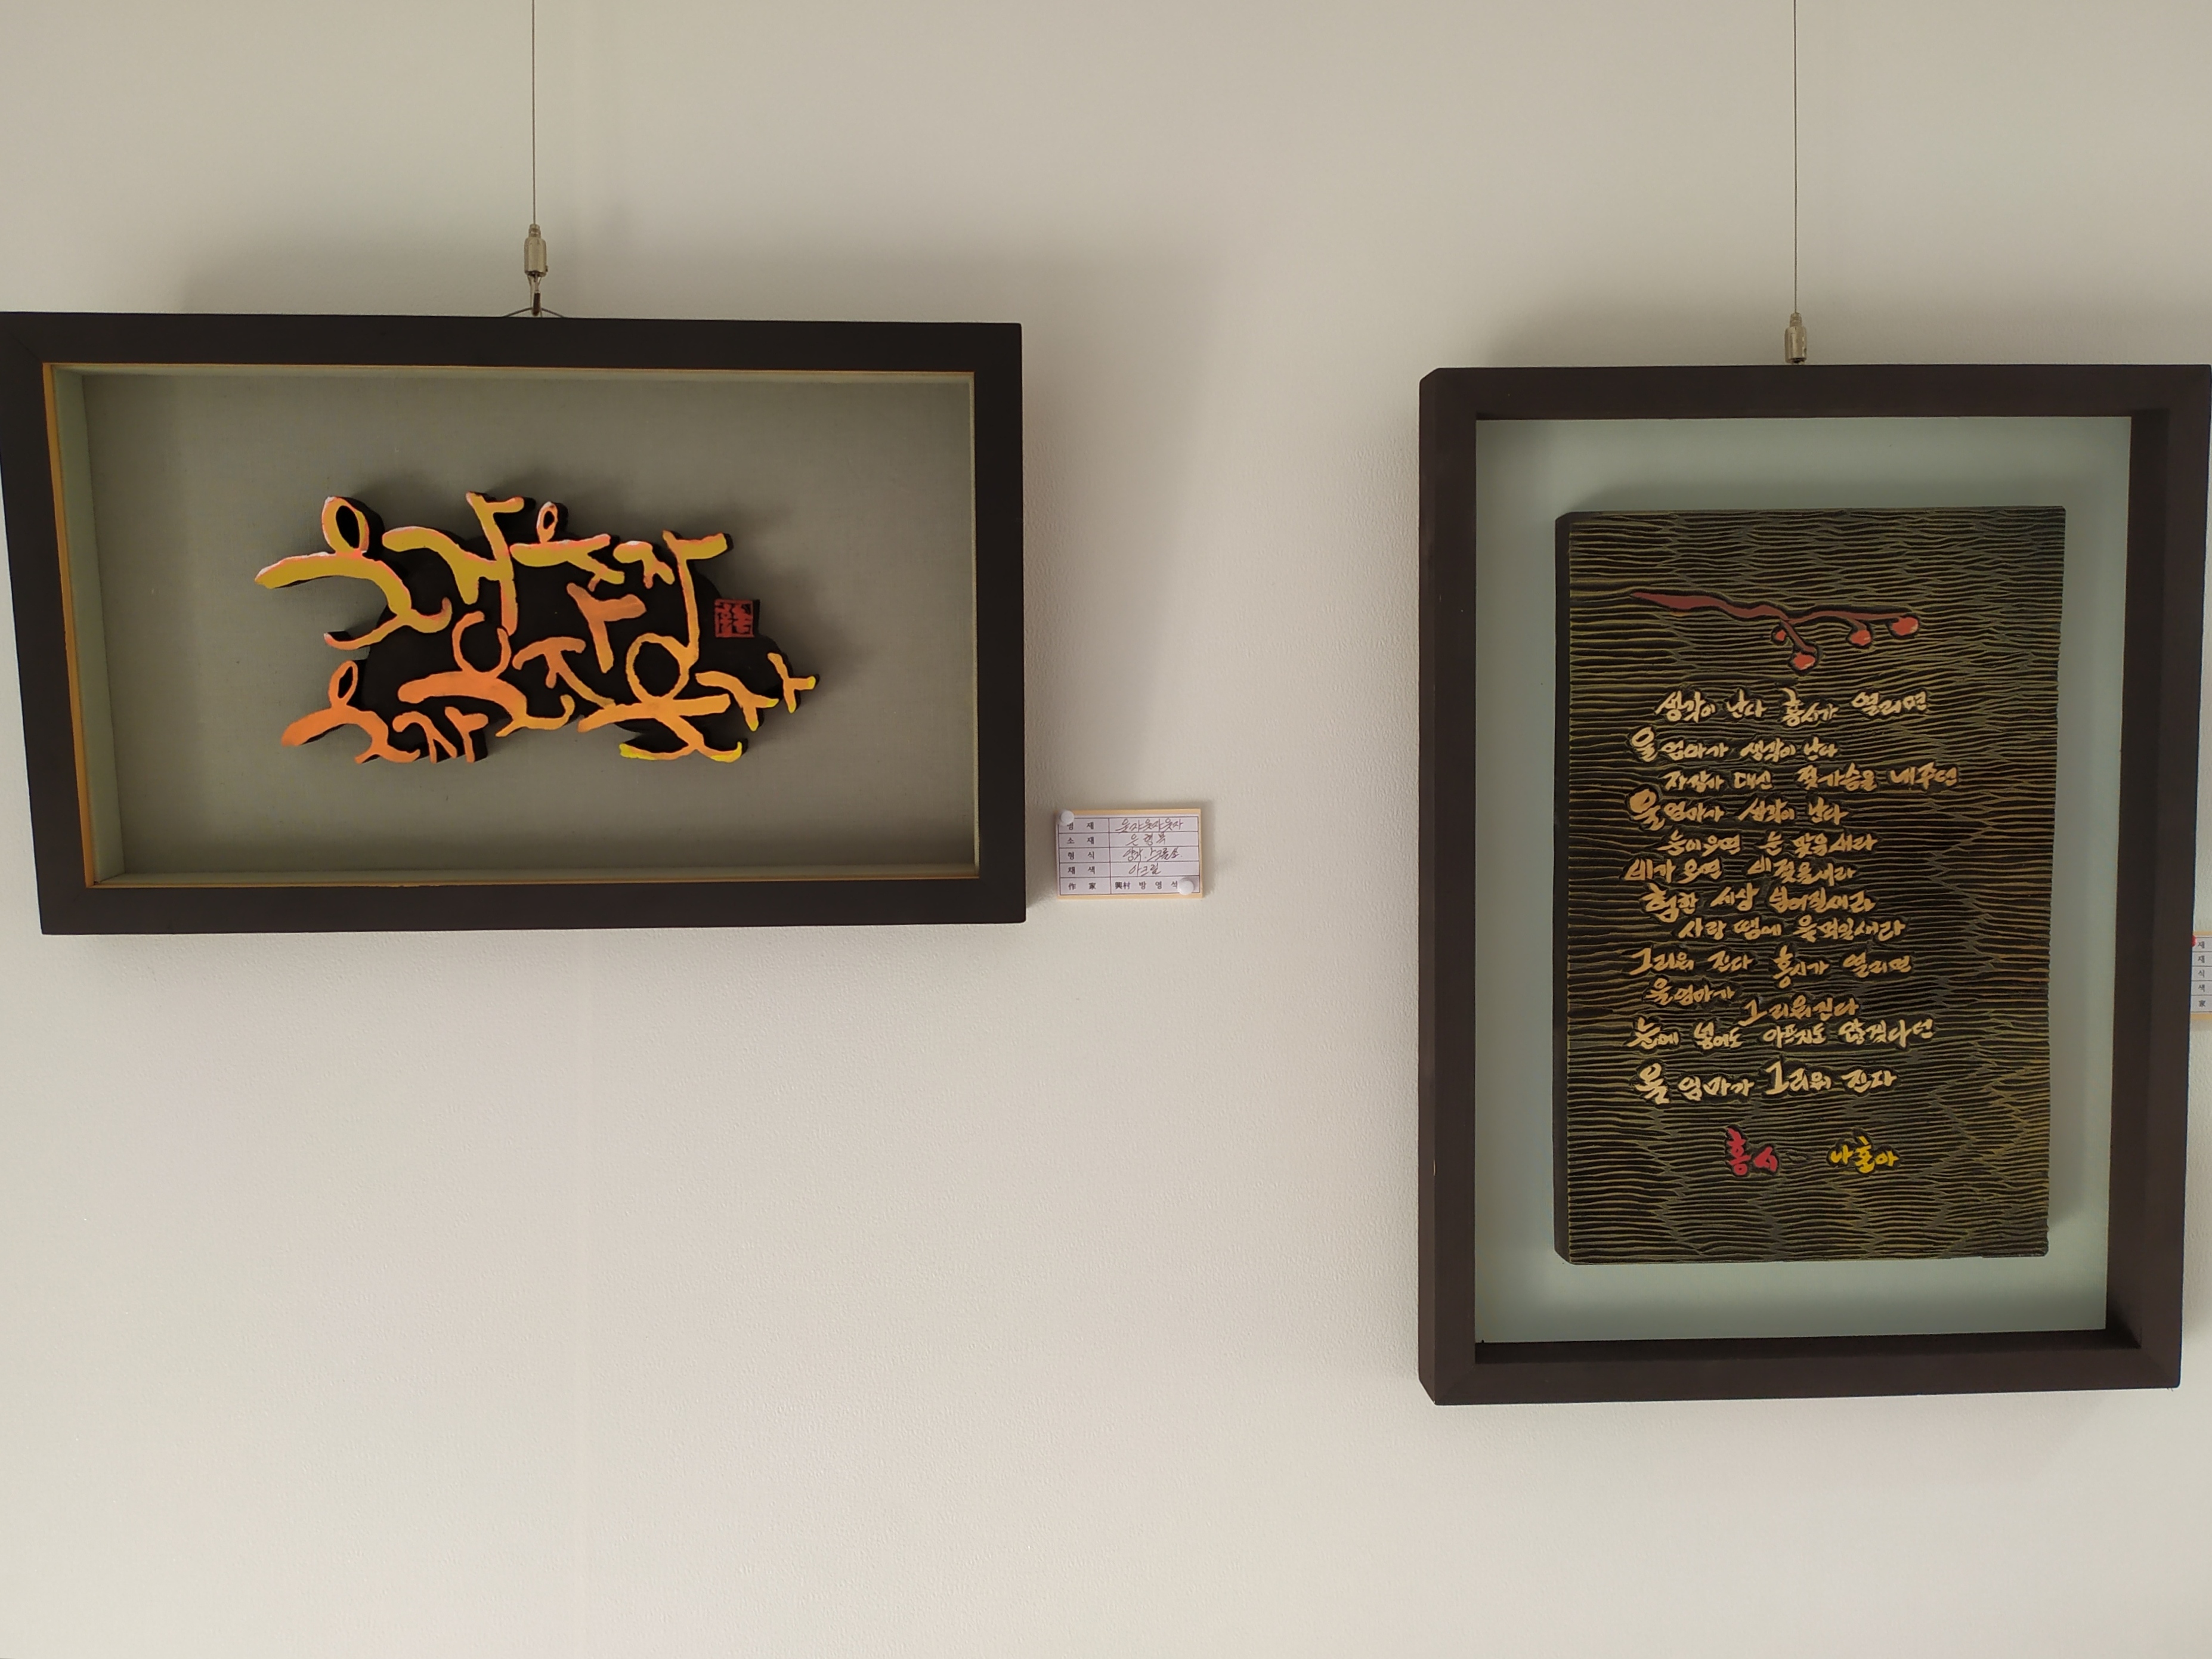 웃자 웃자
웃자 웃자
웃자 웃자
명 제 웃자웃자웃자
소 재 은행목
형 식
채 색 아크릴
作 家 興村 방 영 석
생각이 난다 홍시가 열리면
울 엄마가 생각이 난다
자장가 대신 젖가슴을 내주던
울 엄마가 생각이 난다
눈이 오면 눈 맞을새라
비가 오면 비 젖을새라
험한 세상 넘어질새라
사랑 땜에 울먹일새라
그리워 진다 홍시가 열리면
울 엄마가 그리워진다
눈에 넣어도 아프지도 않겠다던
울 엄마가 그리워 진다
홍시 - 나훈아
제
재
식
색
家